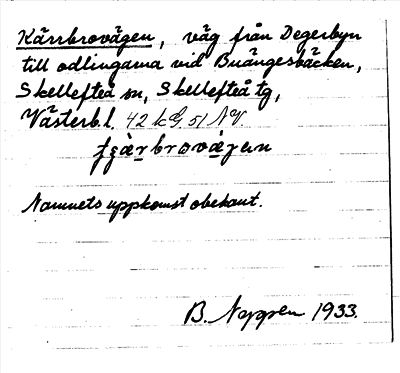 Kärrbrovägen, väg från Degerbyn
till odlingarna vid Buängesbäcken,
Skellefteå sn, Skellefteå tg,
Västerbl. 42 k G. 51 NV.
Namnets uppkomst obekant.
B. Nygren 1933.